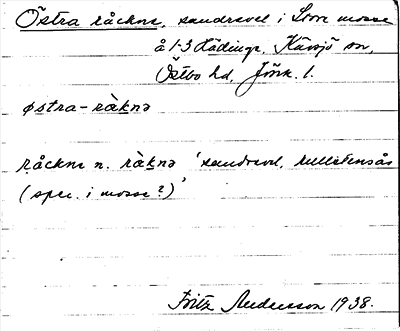 Östra råckne, sandrevel i Stora mosse
å 1-3 Hädinge, Kävsjö sn,
Östbo hd, Jönk. l.
østra-ràknə
råckne n. ràknə 'sandrevel, rullstensås
(spec. i mosse?)'
Fritz Andersson 1938.